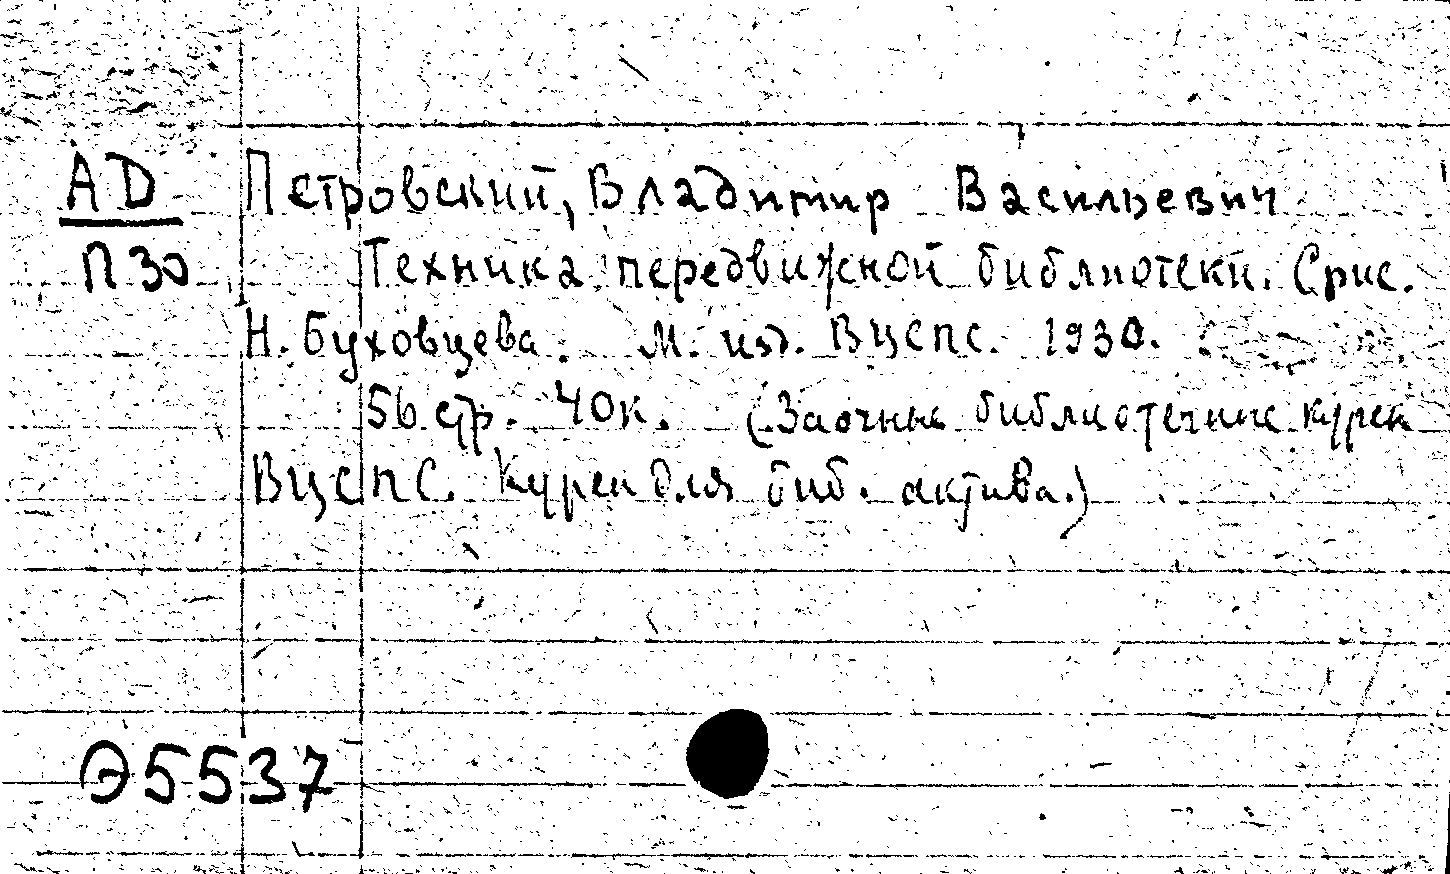 АD Петровский, Владимир Васильевич
П30 Техника передвижной библиотеки. С рис.
Н. Буховцева. М. изд. ВЦСПС. 1930.
56 стр. 40к. (Заочные библиотечные курсы
ВЦСПС. Курсы для биб. актива.)
Э5537